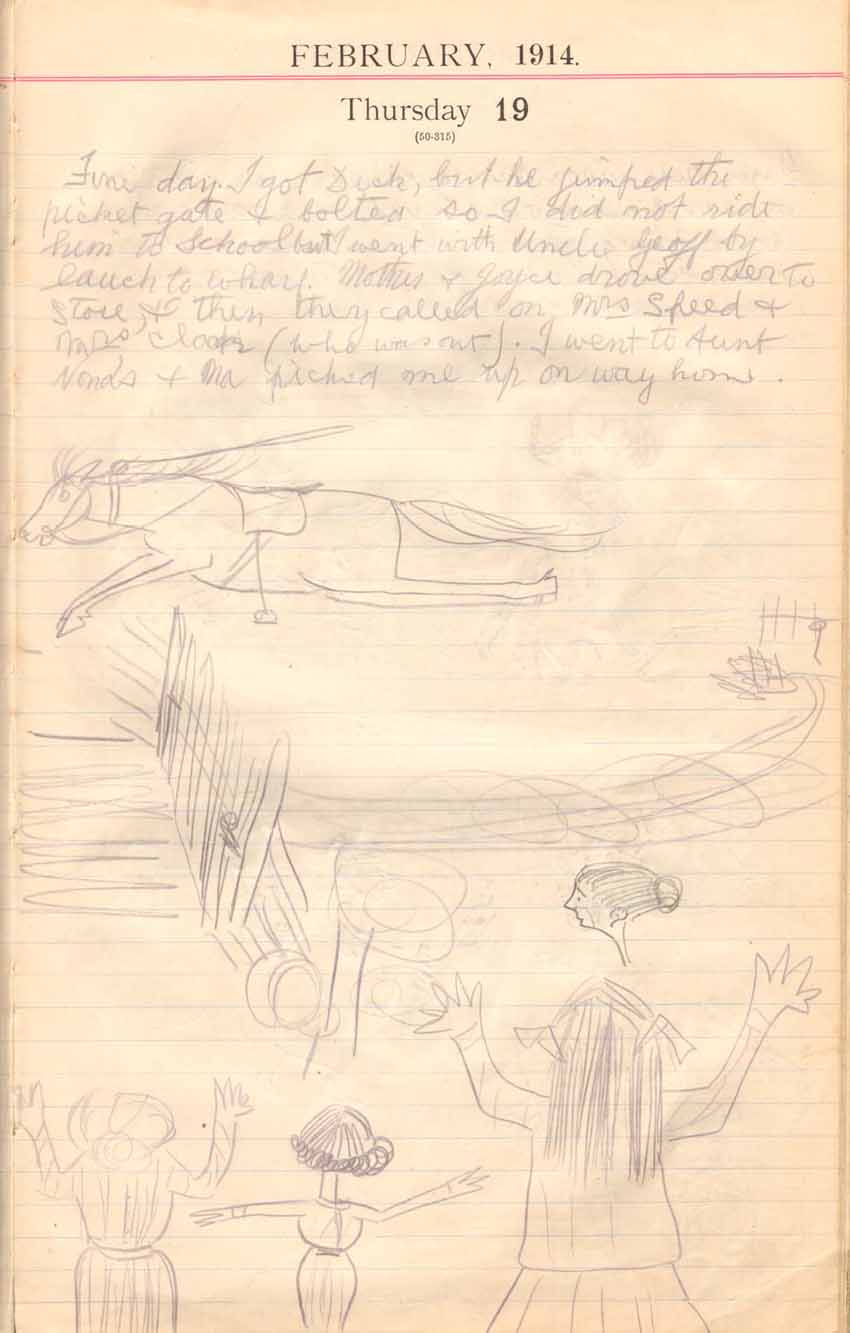 FEBRUARY, 1914.
Thursday 19
(50-315)
Fine day. I got Dick, but he jumped the
picket gate & bolted so I did not ride
him to School but I went with Uncle Geoff by
lauch to wharf. Mother & Joyce drove over to
Store, & then they called on Mrs Speed &
Mrs (who was out). I went to Aunt
& Ma picked me up on way home.